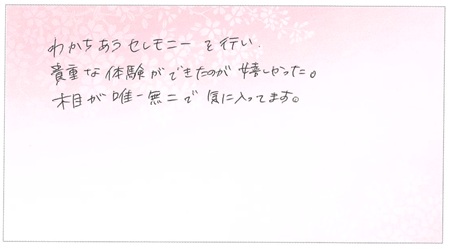 わかちあうセレモニーを行い、
貴重な体験ができたのが嬉しかった。
木目が唯一無二で気に入ってます。